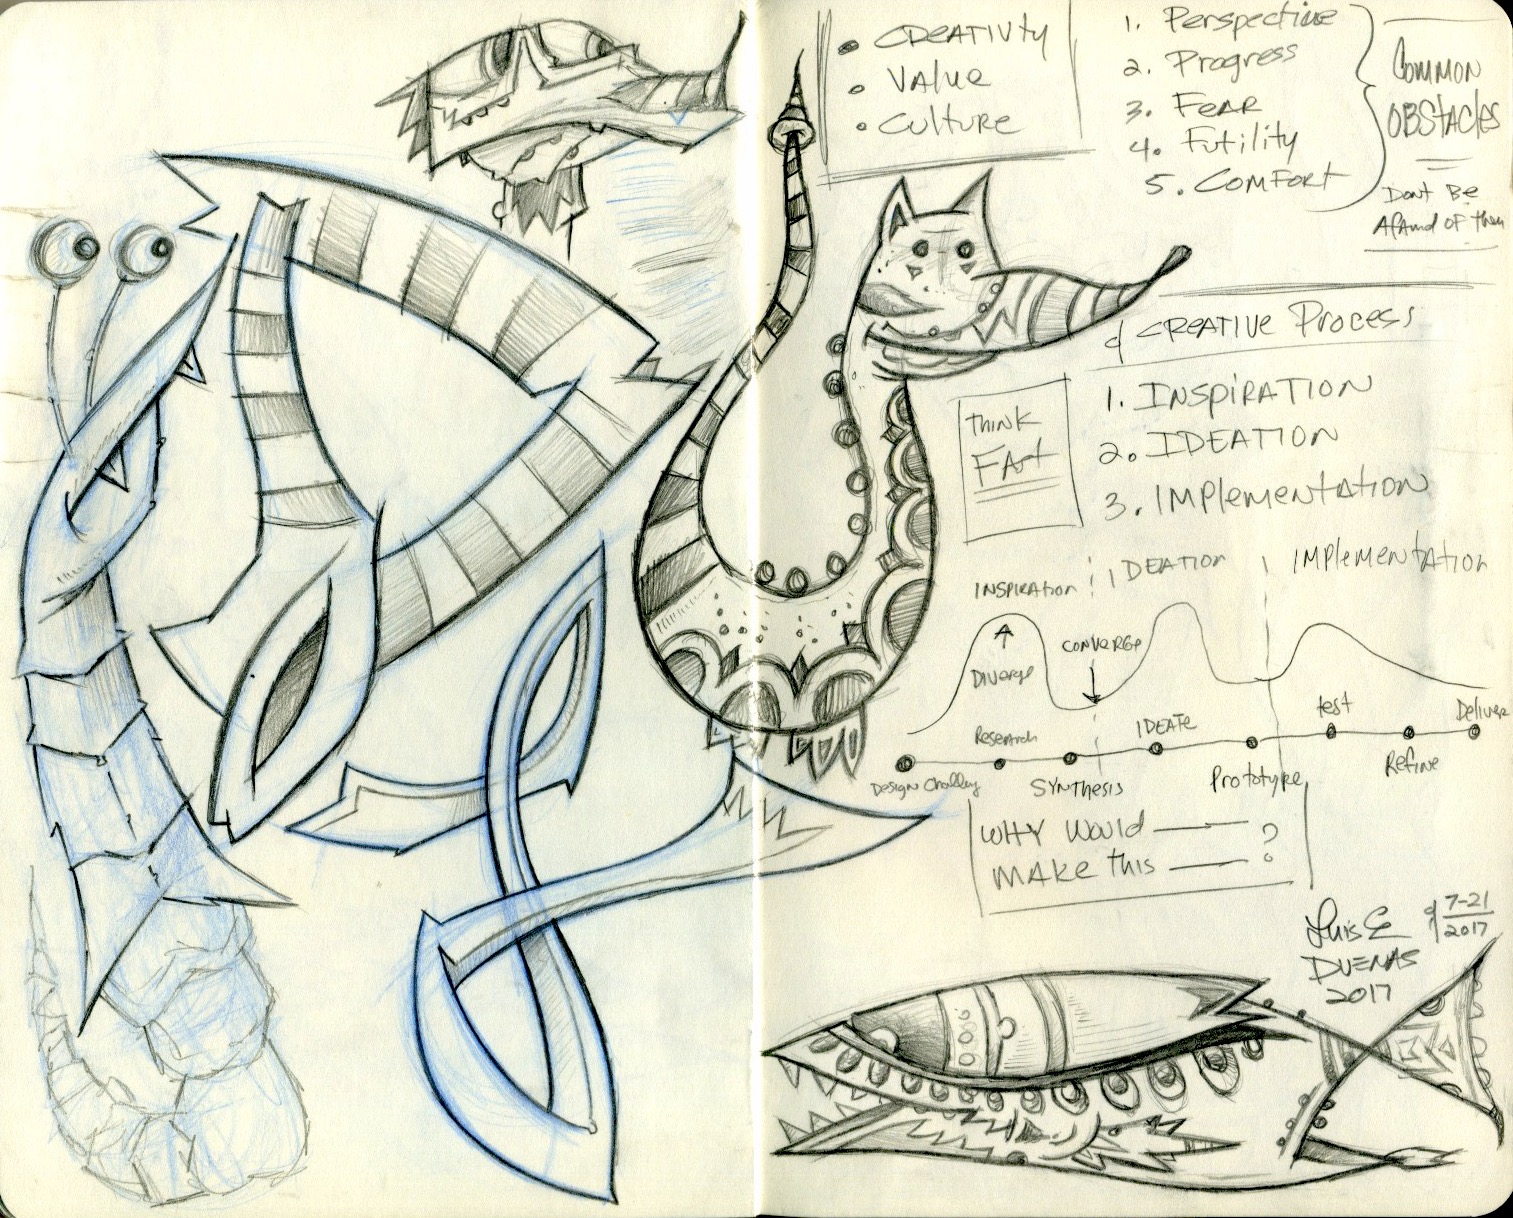 • CREATIVITY
• VALUE
• CULTURE
1. Perspective
2. Progress
3. FEAR
4. Futility
5. COMFORT
COMMON
OBSTACLES
Dont BE
AFRAID OF them
CREATIVE PROCESS
THINK
FAST
1. INSPIRATION
2. IDEATION
3. IMPLEMENTATION
INSPIRATION IDEATION IMPLEMENTATION
DIVERGE
CONVERGE
Design
Research
SYNTHESIS
IDEATE
Prototype
test
Refine
Deliver
WHY Would ?
MAKE this ?
Luis E
DUENAS
2017
7-21
2017